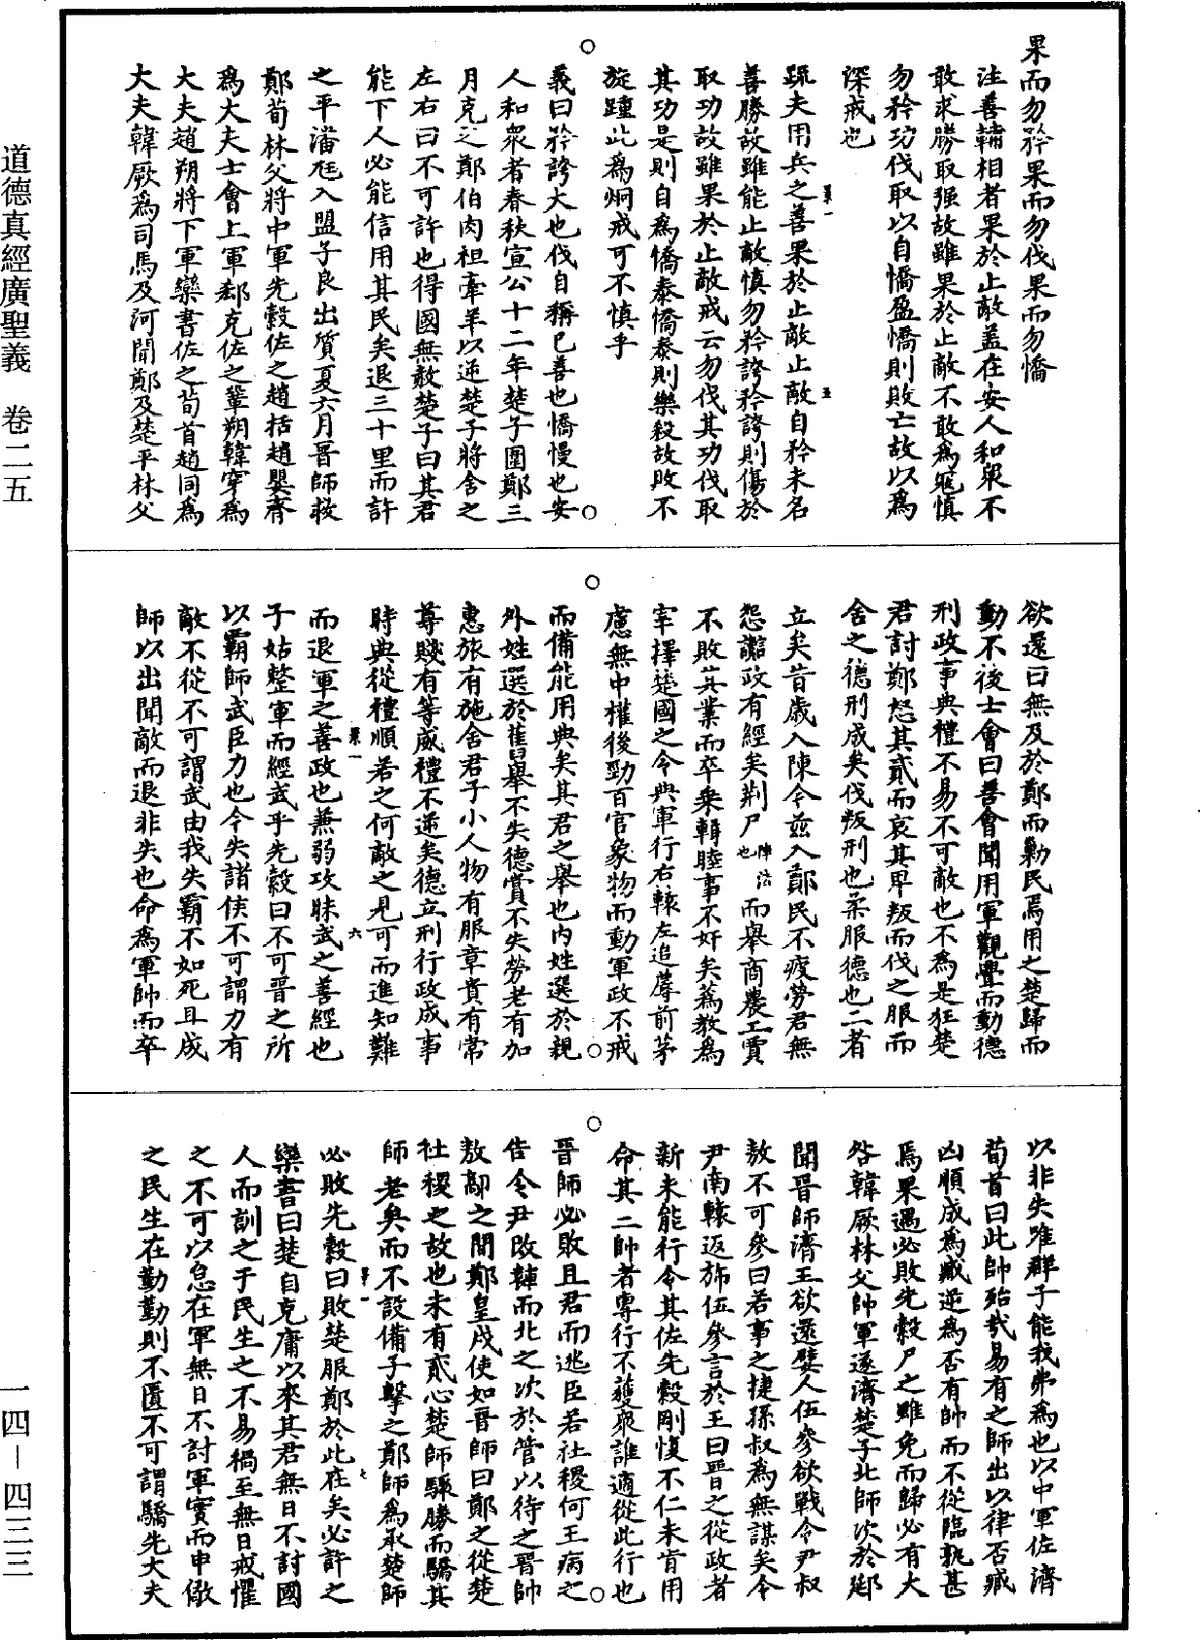 果而勿矜果而勿伐果而勿憍
注善輔相者果於止敵蓋在安人和衆不
敢求勝取强故雖果於止敵不敢為寇慎
勿矜功伐取以自憍盈憍則敗亡故以爲
深戒也
疏夫用兵之善果於止敵止敵自矜未名
善勝故雖能止敵慎勿矜誇矜誇則傷於
取功故雖果於止敵戒云勿伐其功伐取
其功是則自爲憍泰憍泰則樂殺故敗不
旋踵此爲炯戒可不慎乎
義曰矜誇大也伐自稱已善也憍慢也安
人和衆者春秋宣公十二年楚子圍鄭三
月克之鄭伯肉袒牽羊以逆楚子將舍之
左右曰不可許也得國無赦楚子曰其君
能下人必能信用其民矣退三十里而許
之平潘尪入盟子良出質夏六月晉師救
鄭荀林父將中軍先縠佐之趙括趙嬰齊
爲大夫士會上軍郄克佐之鞏朔韓穿爲
大夫趙朔將下軍欒書佐之荀首趙同爲
大夫韓厥爲司馬及河聞鄭及楚平林父
欲還曰無及於鄭而勦民焉用之楚歸而
動不後士會曰善會聞用軍觀釁而動德
刑政事典禮不易不可敵也不爲是狂楚
君討鄭怒其貳而哀其卑叛而伐之服而
舍之德刑成矣伐叛刑也柔服德也二者
立矣昔歲入陳今茲入鄭民不疲勞君無
怨讟政有經矣荆尸陣法也而舉商農工賈
不敗其業而卒乘輯睦事不奸矣蒍敖爲
宰擇楚國之令典軍行右轅左追蓐前茅
慮無中權後勁百官象物而動軍政不戒
而備能用典矣其君之舉也内姓選於親
外姓選於舊舉不失德賞不失勞老有加
惠旅有施舍君子小人物有服章貴有常
尊賤有等威禮不逆矣德立刑行政成事
時典從禮順若之何敵之見可而進知難
而退軍之善政也兼弱攻昧武之善經也
子姑整軍而經武乎先縠曰不可晉之所
以霸師武臣力也今失諸侯不可謂力有
敵不從不可謂武由我失霸不如死且成
師以出聞敵而退非夫也命爲軍帥而卒
以非夫唯群子能我弗爲也以中軍佐濟
荀首曰此師殆哉易有之師出以律否臧
凶順成爲臧逆爲否有帥而不從臨孰甚
焉果遇必敗先縠尸之雖免而歸必有大
咎韓厥林父帥軍遂濟楚子北師次於郔
聞晉師濟王欲還嬖人伍參欲戰令尹叔
敖不可參曰若事之捷孫叔爲無謀矣令
尹南轅返斾伍參言於王曰晉之從政者
新未能行令其佐先縠剛愎不仁未肯用
命其二帥者專行不獲衆誰適從此行也
晉師必敗且君而逃臣若社稷何王病之
告令尹改轅而北之次於管以待之晉帥
敖鄗之間鄭皇戌使如晉師曰鄭之從楚
社稷之故也未有貳心楚師驟勝而驕其
師老矣而不設備子擊之鄭師爲承楚師
必敗先縠曰敗楚服鄭於此在矣必許之
欒書曰楚自克庸以來其君無日不討國
人而訓之于民生之不易禍至無日戒懼
之不可以怠在軍無日不討軍實而申儆
之民生在勤勤則不匱不可謂驕先大夫
道德真經廣聖義　卷二五
一四－四三三